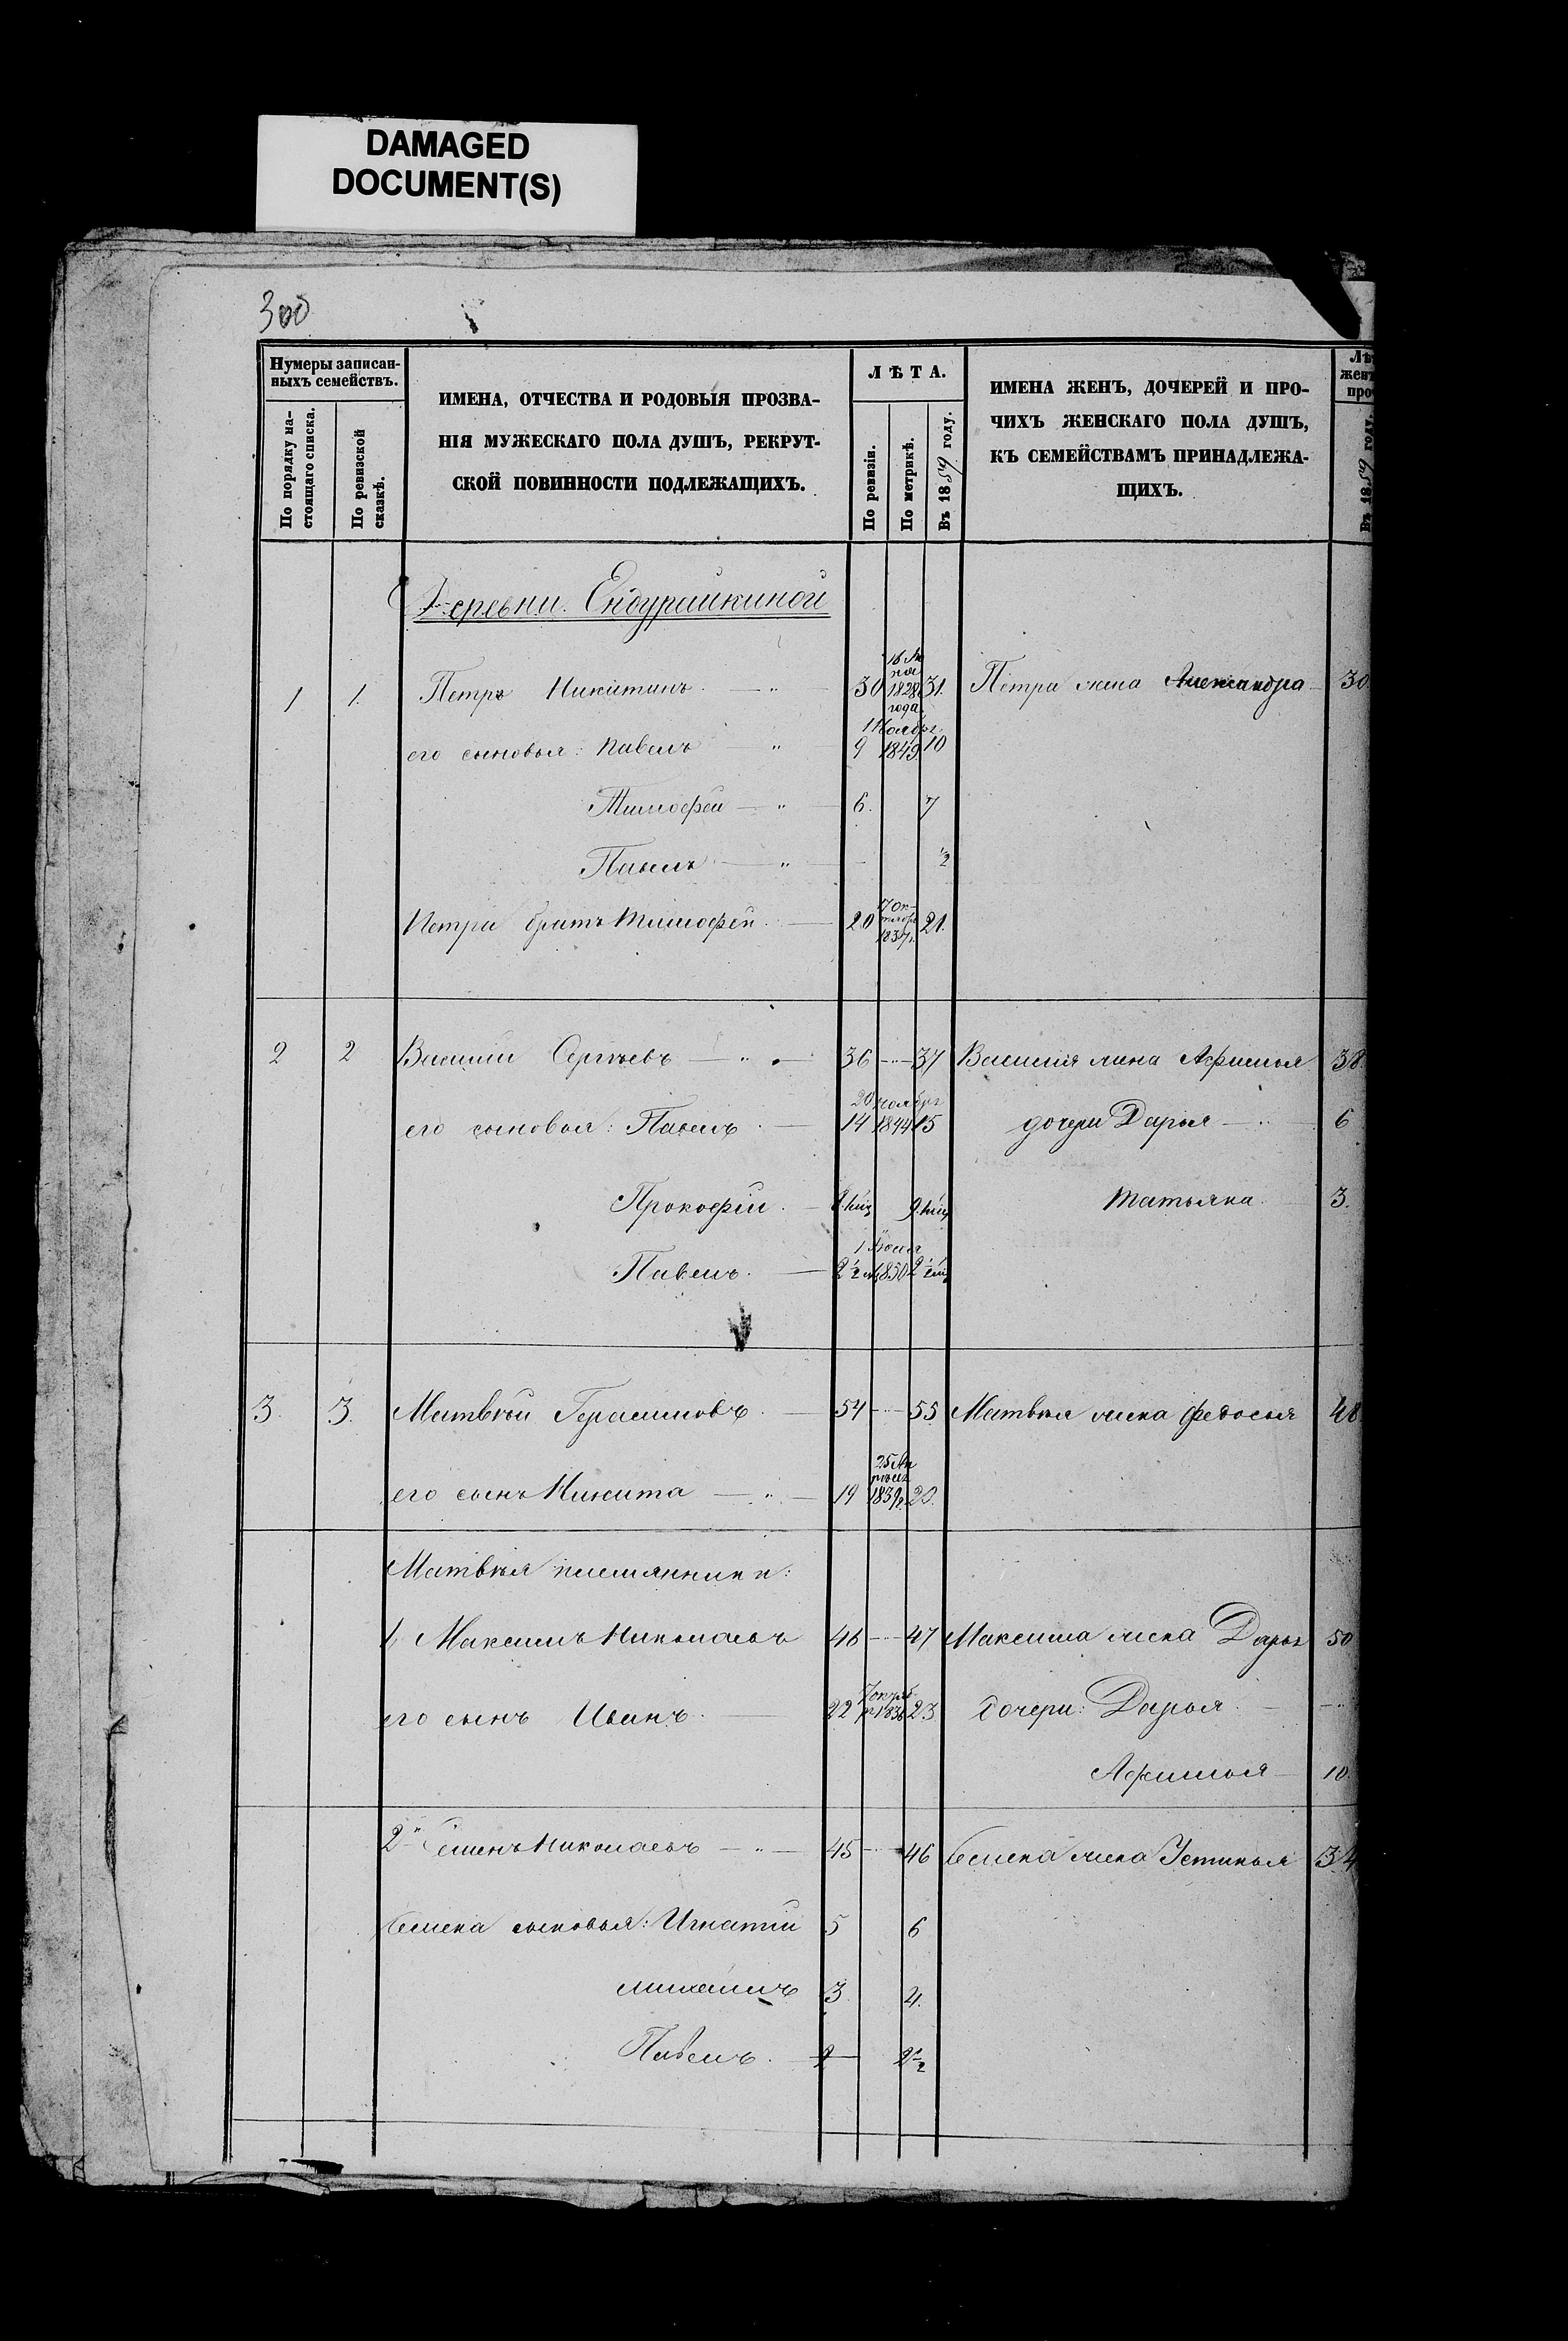 DAMAGED
DOCUMENT(S)
300
Нумеры записан-
ныхъ семействъ.
По порядку на-
стоящаго списка.
По ревизской
сказкѣ.
ИМЕНА, ОТЧЕСТВА И РОДОВЫЯ ПРОЗВА-
НІЯ МУЖЕСКАГО ПОЛА ДУШЪ, РЕКРУТ-
СКОЙ ПОВИННОСТИ ПОДЛЕЖАЩИХЪ.
ЛѢТА.
По ревизіи.
По метрикѣ.
Въ 1859 году.
ИМЕНА ЖЕНЪ, ДОЧЕРЕЙ И ПРО-
ЧИХЪ ЖЕНСКАГО ПОЛА ДУШЪ,
КЪ СЕМЕЙСТВАМЪ ПРИНАДЛЕЖА-
ЩИХЪ.
Въ 1859 году.
Деревни. Ендурайкиной
1 1. Петръ Никитинъ 30 1828 года 31. Петра жена Александра 30.
его сыновья: Павелъ 9 1 Ноября 1849 10
Тимофей 6. 7
Павелъ 1/2
Петра братъ Тимофей 20 17 Октября 1837 21.
2 2 Василій Сергѣевъ 36 37 Василія жена Афимья 38.
его сыновья: Павелъ 14 20 ноября 1844 15 дочери Дарья 6
Прокофій Татьяна 3.
Павелъ 1850
3. 3. Матвѣй Герасимовъ 54 55 Матвѣя жена Федосья 48.
его сынъ Никита 19 25 Апрѣля 1839 г. 20.
Матвѣя племянники:
1, Максимъ Николаевъ 46 47 Максима жена Дарья 50
его сынъ Иванъ 22 1836 23 дочери: Дарья
Афимья 10.
2й Семенъ Николаевъ 45 46 Семена жена Устинья 34
Семена сыновья: Игнатій 5 6
Михаилъ 3 4.
Павелъ. 2 1/2